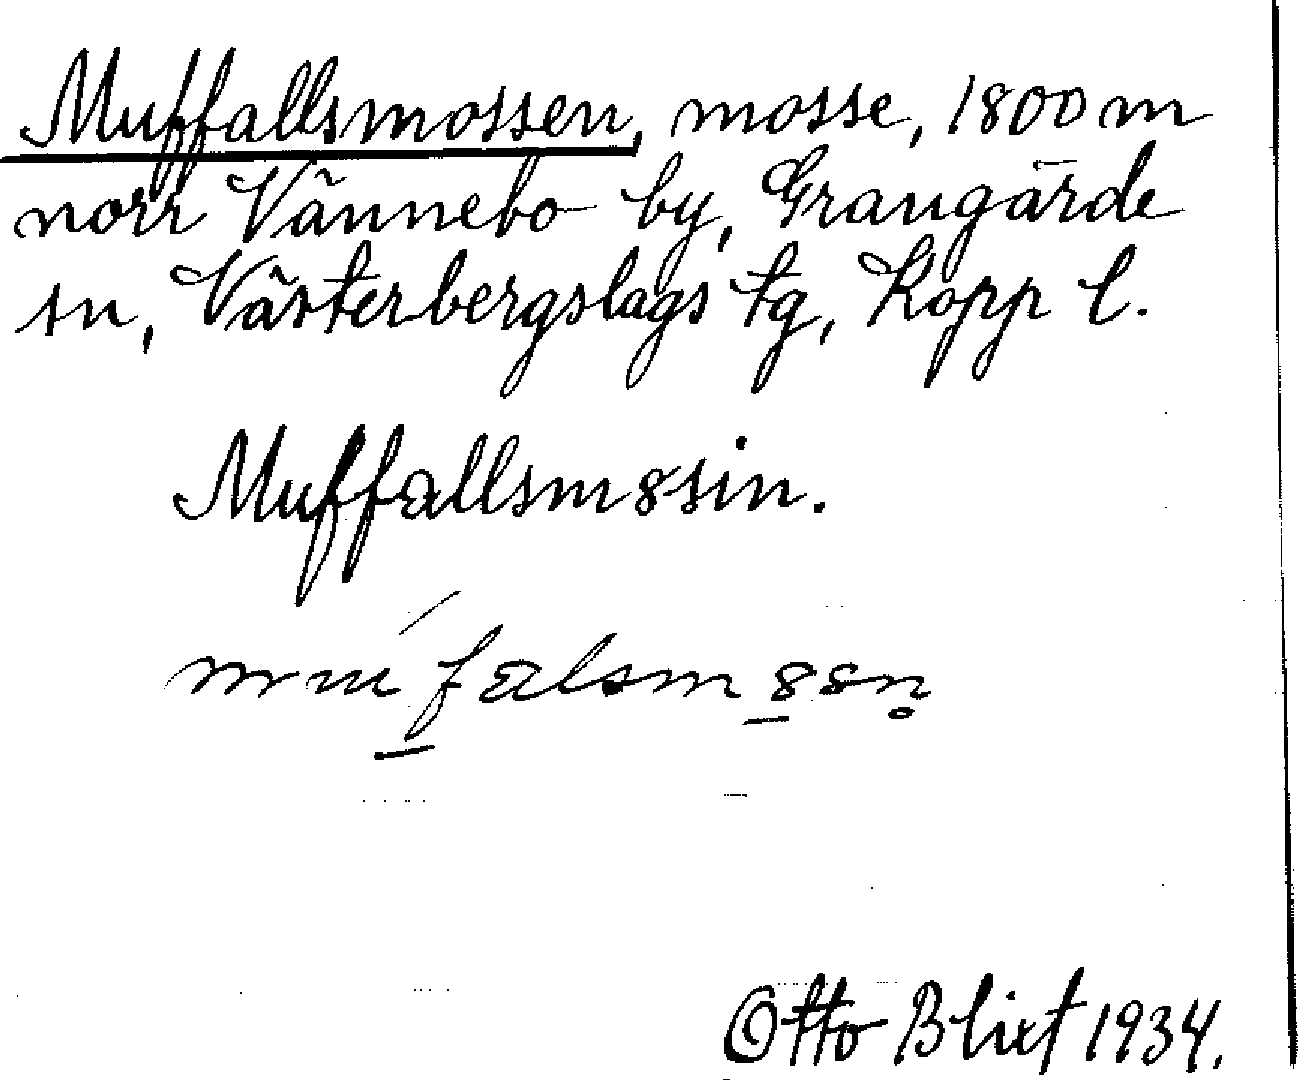 Muffallsmossen, mosse, 1800 m
norr Vännebo by, Grangärde
sn, Västerbergslags tg, Kopp l.
Muffallsm8sin.
Otto Blixt 1934.